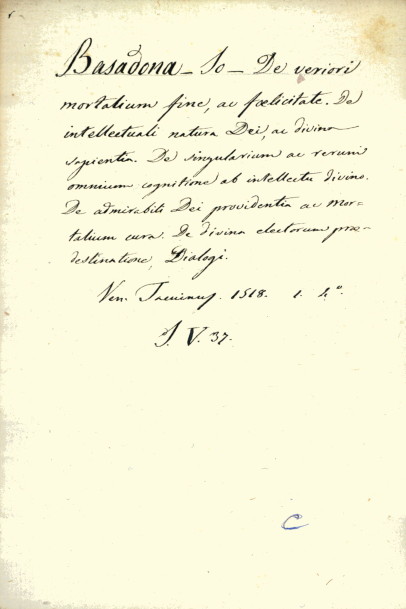 Basadona - Jo - De veriori
mortalium fine, ac fœlicitate. De
intellectuali natura Dei, ac divina
sapientia. De singularium ac rerum
omnium cognitione ab intellectu divino.
De admirabili Dei providentia ac mor=
talium cura. De divina electorum præ=
destinatione, Dialogi.
Ven. 1518. 1. 4.º
J. V. 37.
C